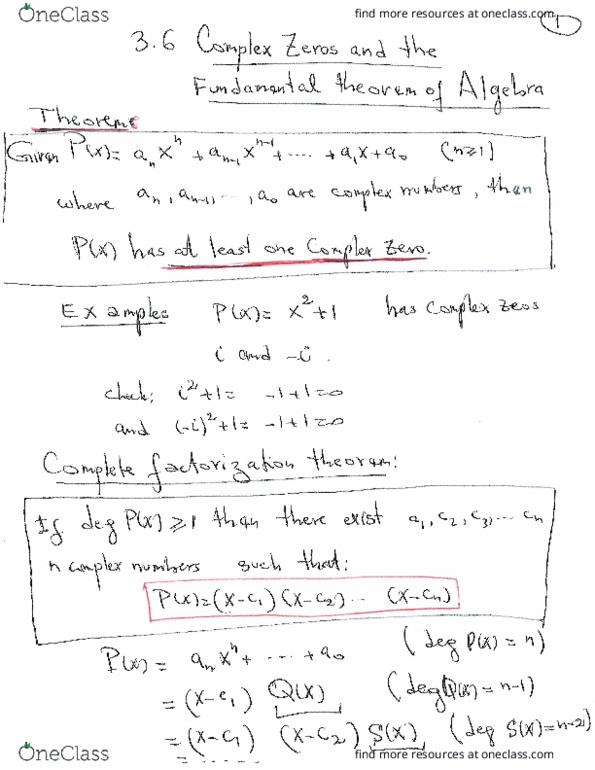 OneClass find more resources at oneclass.com 1
3.6 Complex Zeros and the
Fundamental theorem of Algebra
Theorem:
Given P(x)= aₙxⁿ + aₙ₋₁xⁿ⁻¹ + .... + a₁x + a₀ (n≥1)
where aₙ, aₙ₋₁, ..., a₀ are complex numbers, then
P(x) has at least one Complex Zero.
Examples P(x)= x²+1 has complex zeos
i and -i.
check: i²+1= -1+1=0
and (-i)²+1= -1+1=0
Complete factorization theorem:
If deg P(x)≥1 than there exist a₁, c₂, c₃, ... cₙ
n complex numbers such that:
P(x)=(x-c₁)(x-c₂)... (x-cₙ)
P(x)= aₙxⁿ + .... + a₀ (deg P(x) = n)
= (x-c₁) Q(x) (deg Q(x) = n-1)
= (x-c₁) (x-c₂) S(x) (deg S(x)=n-2)
= ......
OneClass find more resources at oneclass.com